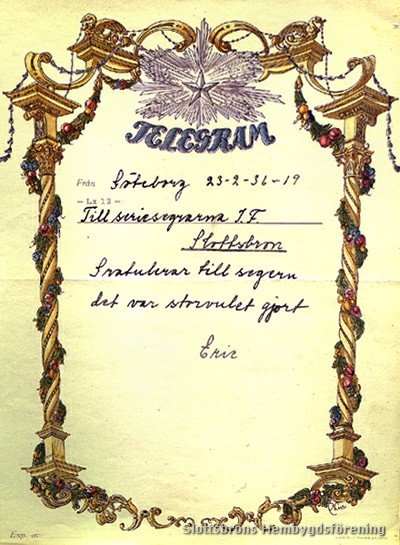 TELEGRAM
Från Göteborg 23-2-36-19
— Lx 12 —
Till seriesegrarna I.F
Slottsbron
Gratulerar till segern
det var storvulet gjort
Eric
Exp.
Slottsbrons Hembygdsförening